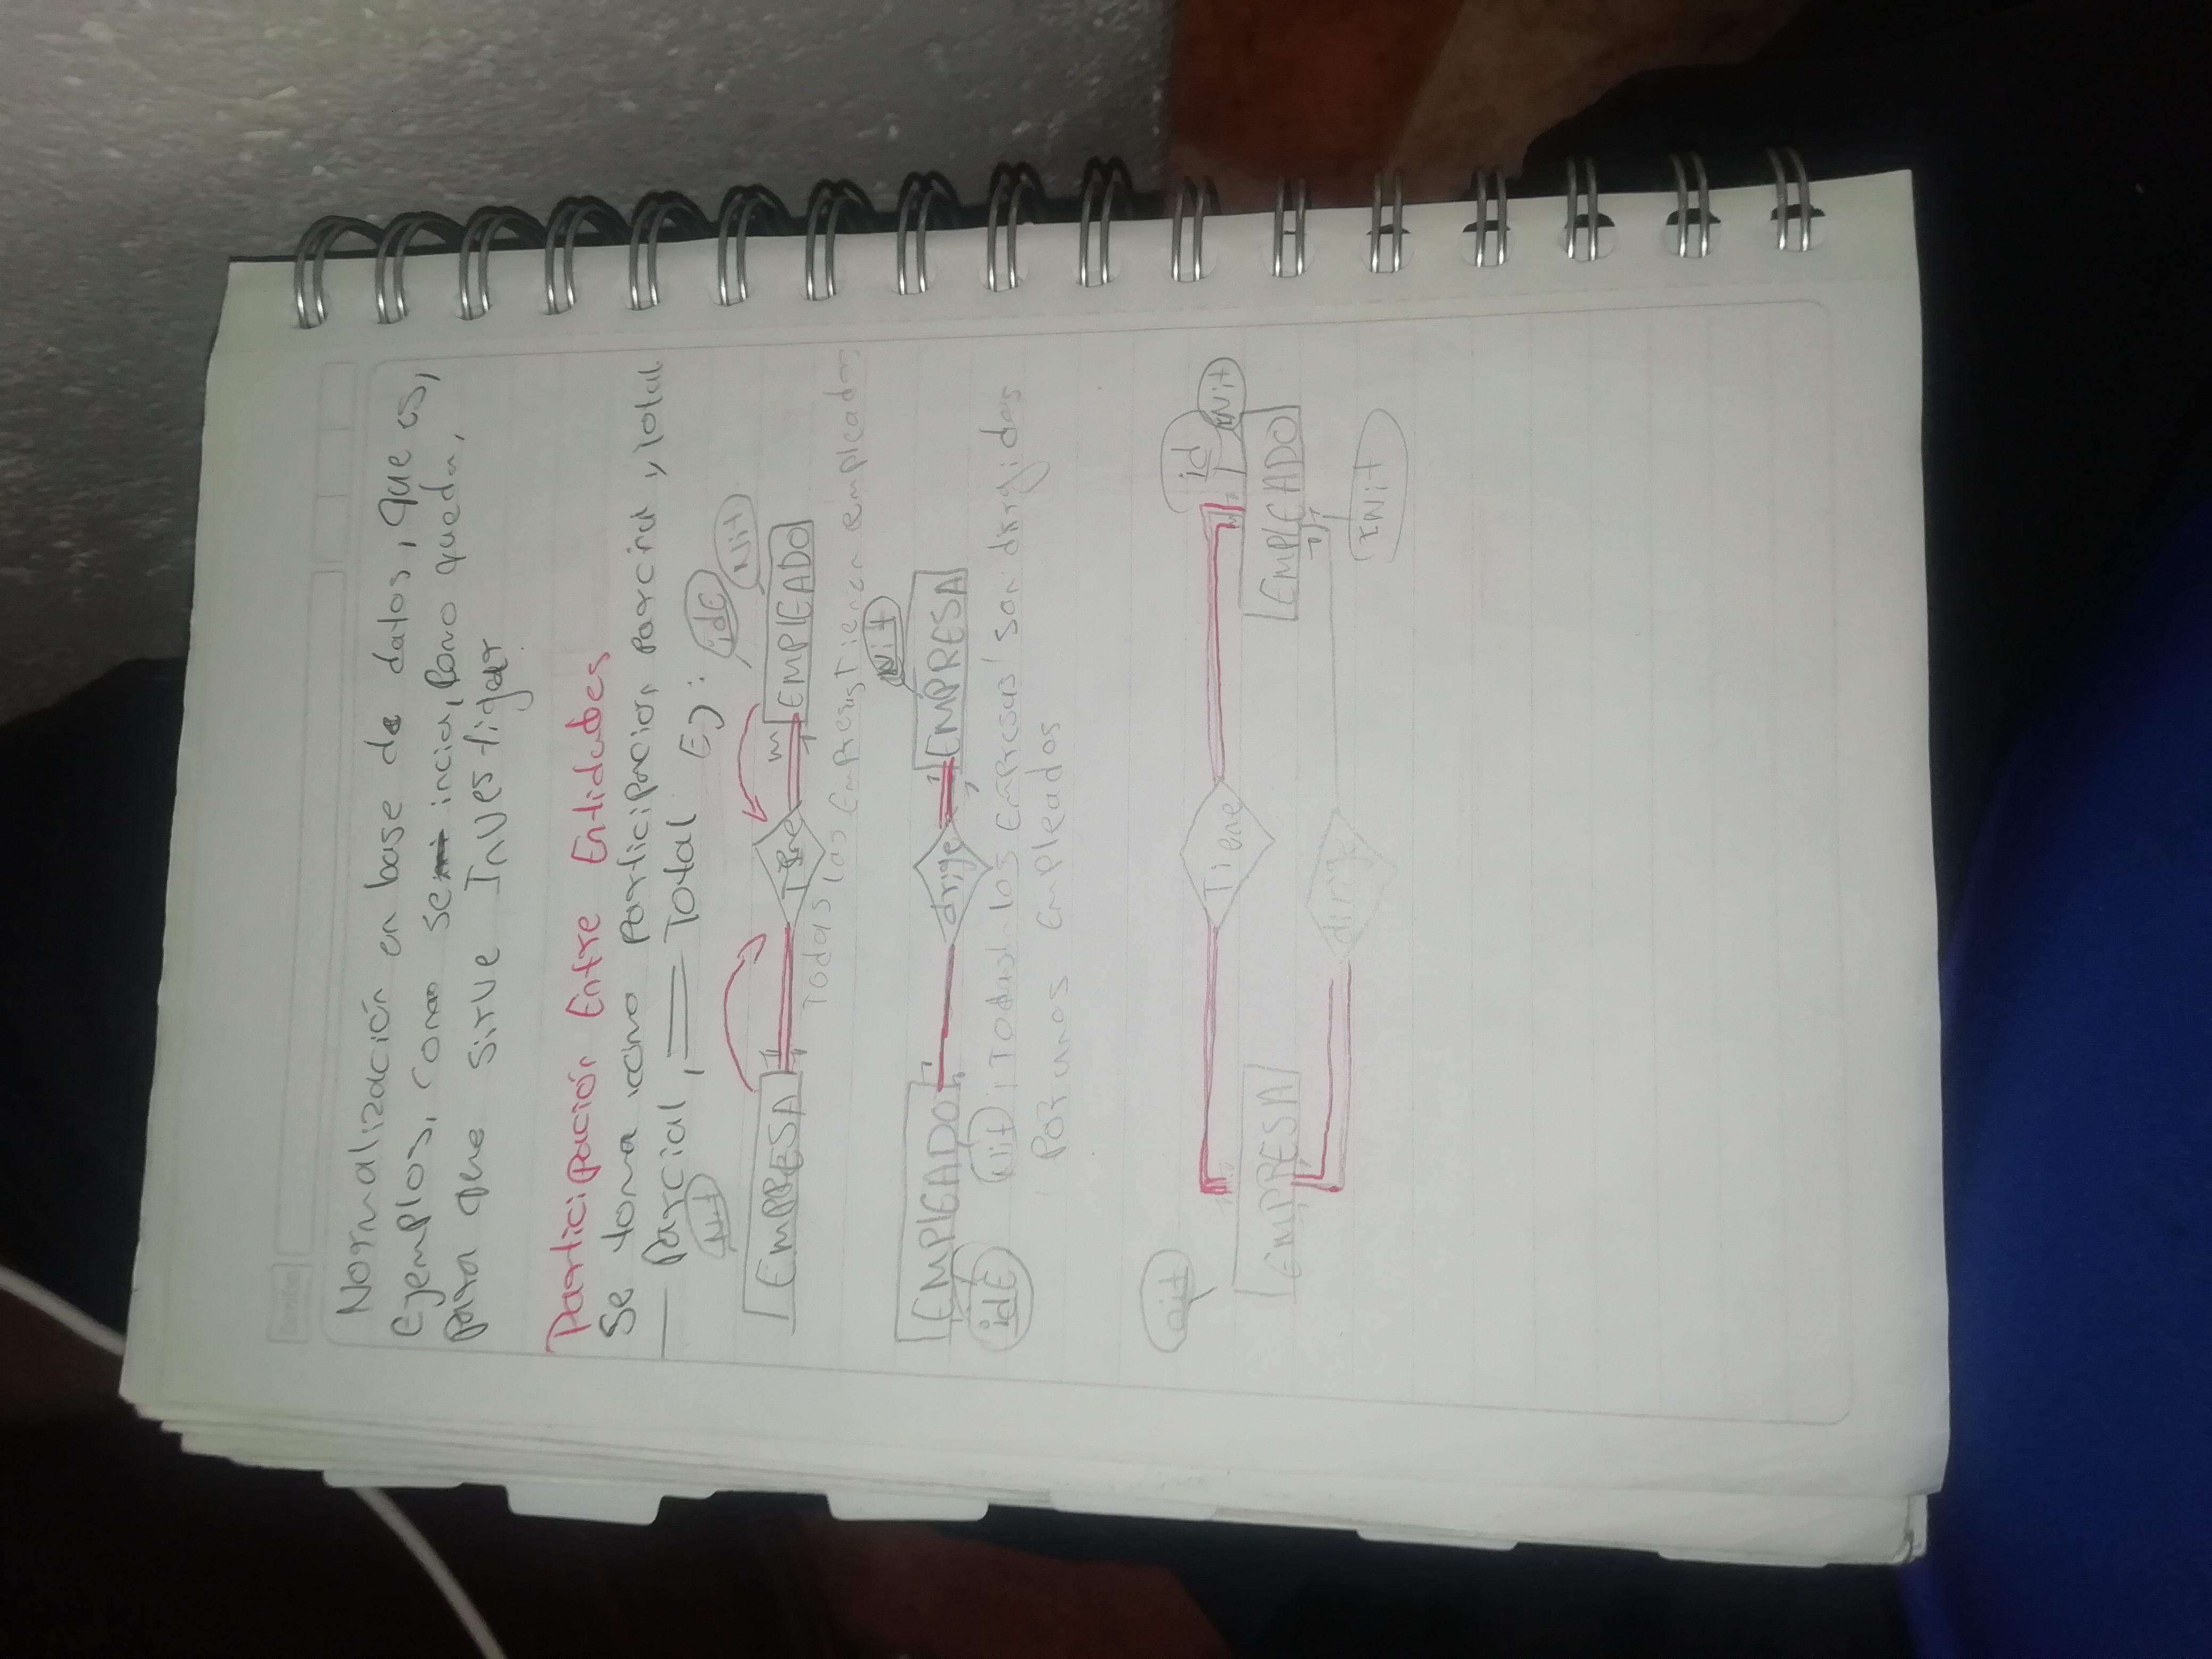 Normalización en base de datos, que es,
Ejemplos, como se inicia, como queda,
para que sirve Investigar
Participación Entre Entidades
Se toma como participación parcial y total
— parcial, == Total Ej:
Nit
idE
Nit
EMPRESA
Tiene
m
EMPLEADO
Todas las Empresas Tienen empleados
Nit
EMPLEADO
dirige
EMPRESA
idE
Nit
Todas las Empresas son dirigidas
Por unos Empleados
nit
id
Nit
Tiene
EMPRESA
EMPLEADO
dirige
rNit